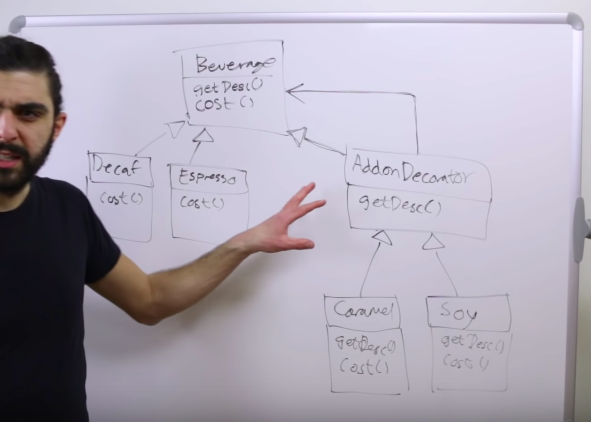 Beverage
getDesc()
cost()
Decaf
cost()
Espresso
cost()
AddonDecorator
getDesc()
Caramel
getDesc()
cost()
Soy
getDesc()
cost()